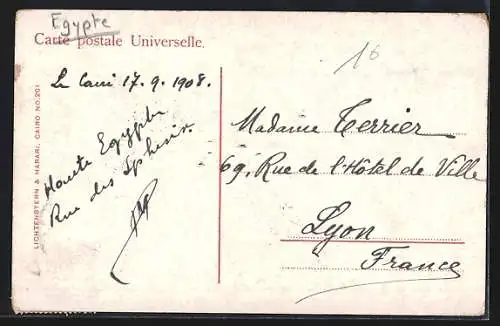 Egypte
Carte postale Universelle.
16
Le Caire 17. 9. 1908.
Haute Egypte
Rue des Sphinx.
Madame Terrier
69, Rue de l'Hôtel de Ville
Lyon
France
LICHTENSTERN & HARARI, CAIRO NO.201